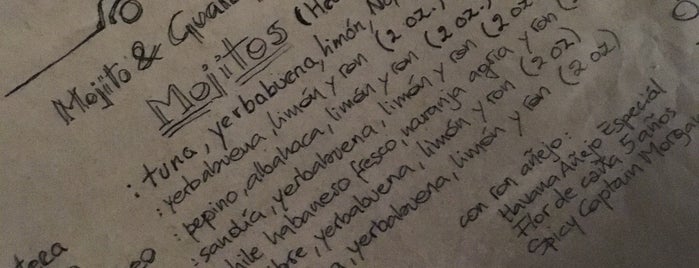 Mojito &
Mojitos
: tuna, yerbabuena, limón,
: yerbabuena, limón y ron (2 oz.)
: pepino, albahaca, limón y ron (2 oz.)
: sandía, yerbabuena, limón y ron (2 oz
chile habanero fresco, naranja agria y ron
yerbabuena, limón y ron (2 oz)
, yerbabuena, limón y ron (2 oz)
con ron añejo:
Havana Añejo Especial
Flor de caña 5 años
Spicy Captain Morgan